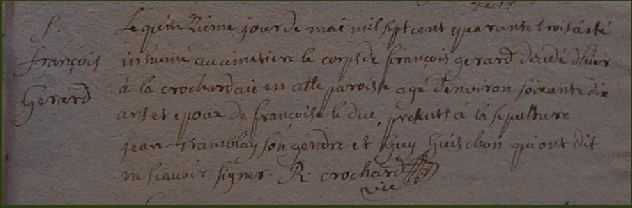 S.
françois
Gerard
Le quinzieme jour de mai mil sept cent quarante trois a été
inhumé au cimetiere le corps de françois gerard decedé d'hier
à la crochardaie en cette paroisse agé d'environ soixante dix
ans et epoux de françoise le duc, presents à la sepulture
jean tramblay son gendre et Guy Guischon qui ont dit
ne scavoir signer. R. crochard
vic